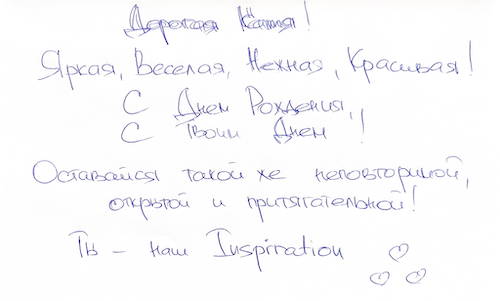 Дорогая Катя!
Яркая, Веселая, Нежная, Красивая!
С Днем Рождения,
С Твоим Днем!
Оставайся такой же неповторимой,
открытой и притягательной!
Ты - наш Inspiration